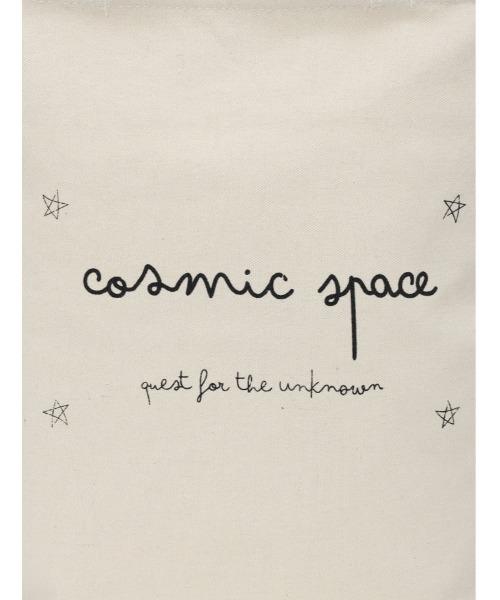 cosmic space
quest for the unknown